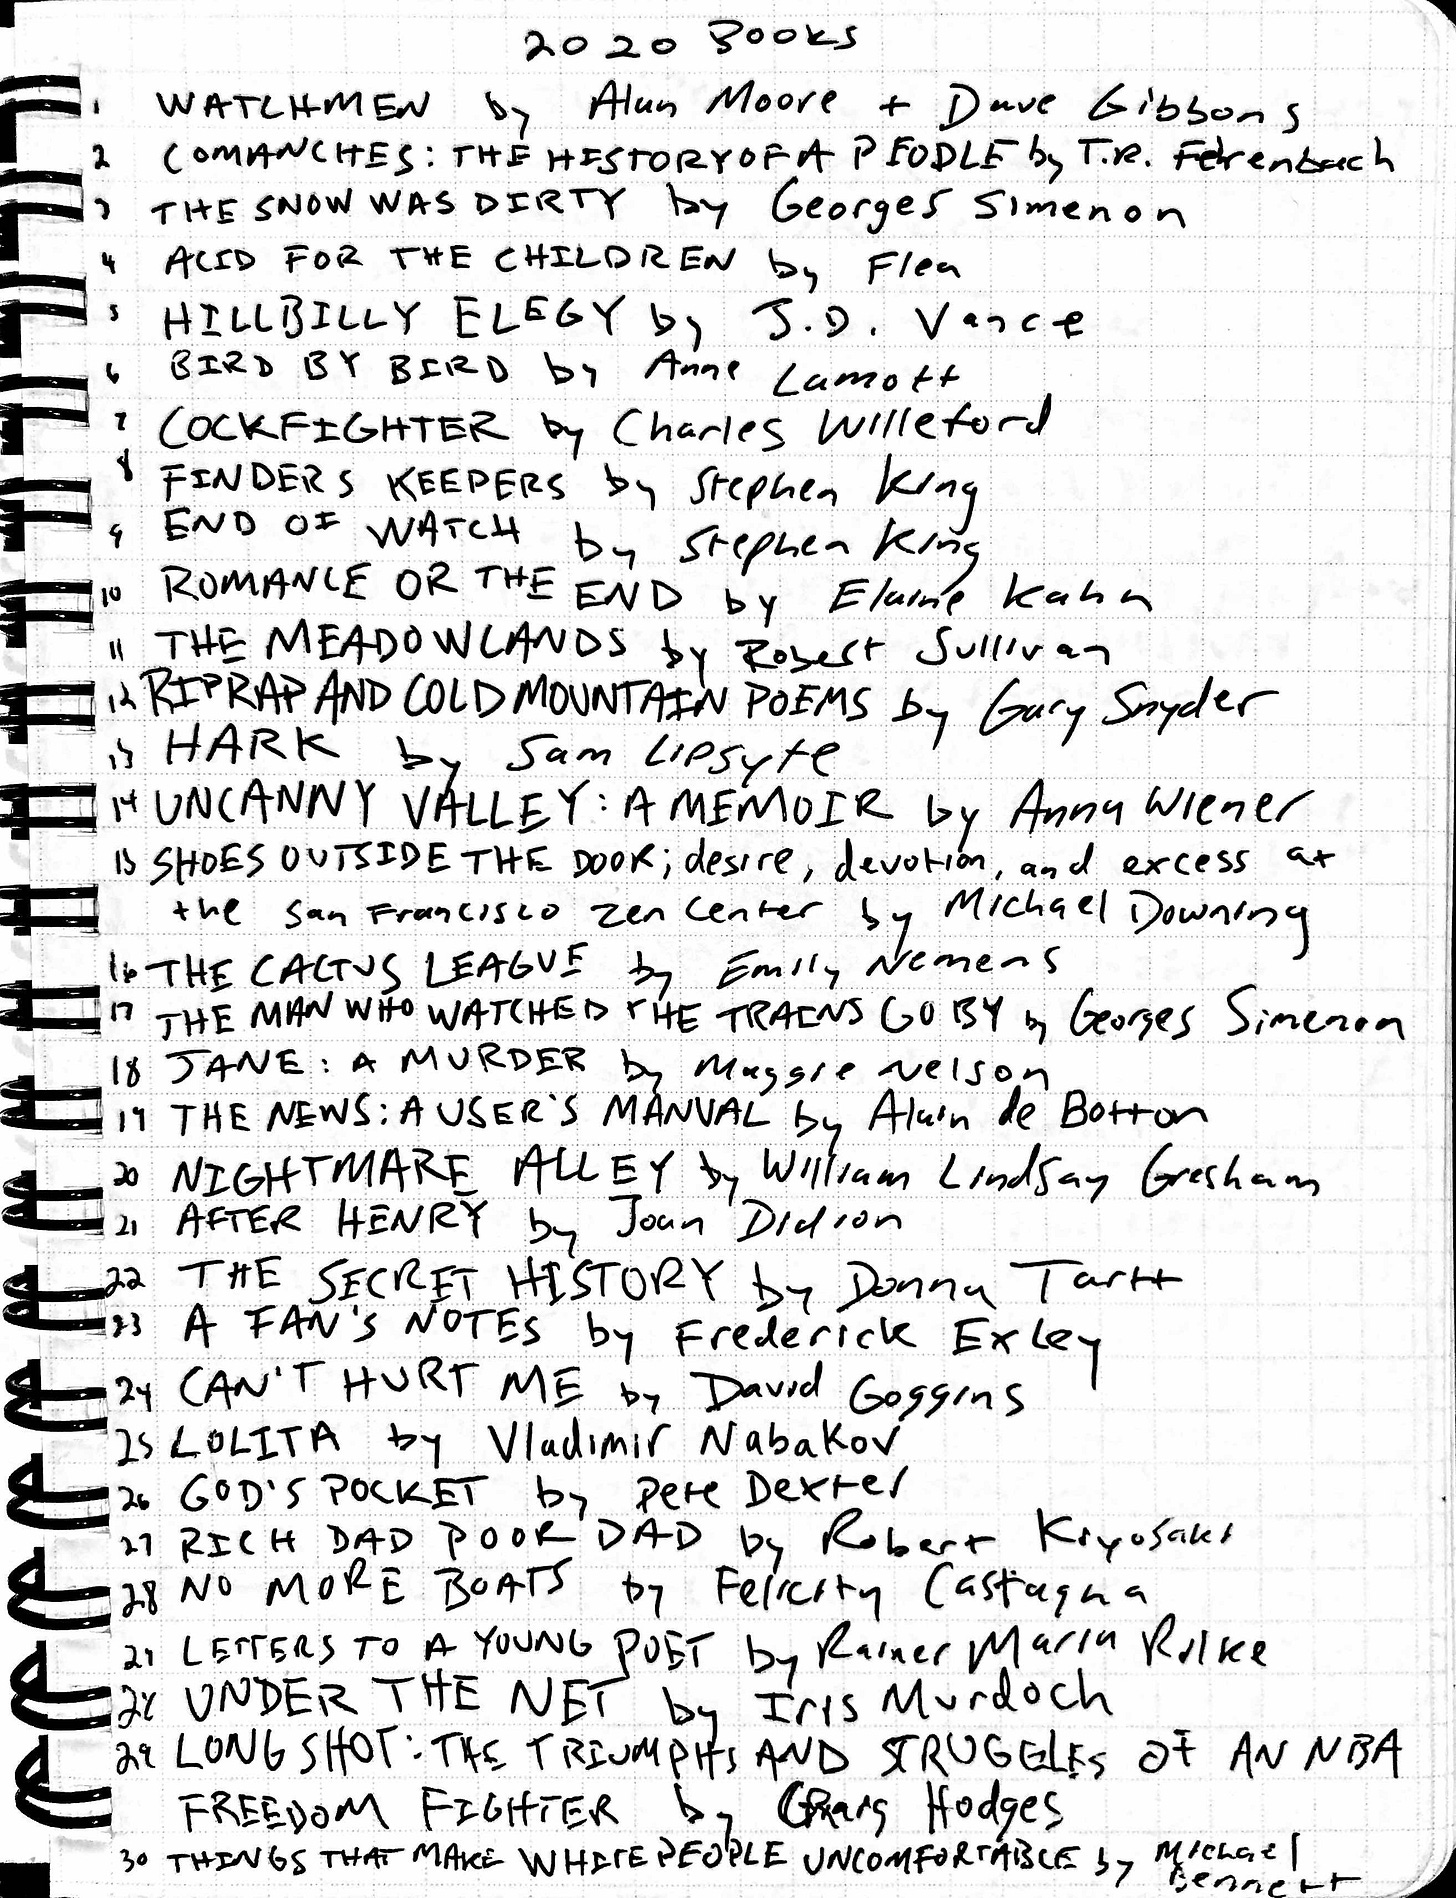 2020 BOOKS
1 WATCHMEN by Alan Moore + Dave Gibbons
2 COMANCHES: THE HISTORY OF A PEOPLE by T.R. Fehrenbach
3 THE SNOW WAS DIRTY by Georges Simenon
4 ACID FOR THE CHILDREN by Flea
5 HILLBILLY ELEGY by J.D. Vance
6 BIRD BY BIRD by Anne Lamott
7 COCKFIGHTER by Charles Willeford
8 FINDERS KEEPERS by Stephen King
9 END OF WATCH by Stephen King
10 ROMANCE OR THE END by Elaine Kahn
11 THE MEADOWLANDS by Robert Sullivan
12 RIPRAP AND COLD MOUNTAIN POEMS by Gary Snyder
13 HARK by Sam Lipsyte
14 UNCANNY VALLEY: A MEMOIR by Anna Wiener
15 SHOES OUTSIDE THE DOOR; desire, devotion, and excess at
the San Francisco Zen Center by Michael Downing
16 THE CACTUS LEAGUE by Emily Nemens
17 THE MAN WHO WATCHED THE TRAINS GO BY by Georges Simenon
18 JANE: A MURDER by Maggie Nelson
19 THE NEWS: A USER'S MANUAL by Alain de Botton
20 NIGHTMARE ALLEY by William Lindsay Gresham
21 AFTER HENRY by Joan Didion
22 THE SECRET HISTORY by Donna Tartt
23 A FAN'S NOTES by Frederick Exley
24 CAN'T HURT ME by David Goggins
25 LOLITA by Vladimir Nabakov
26 GOD'S POCKET by Pete Dexter
27 RICH DAD POOR DAD by Robert Kiyosaki
28 NO MORE BOATS by Felicity Castagna
29 LETTERS TO A YOUNG POET by Rainer Maria Rilke
28 UNDER THE NET by Iris Murdoch
29 LONG SHOT: THE TRIUMPHS AND STRUGGLES OF AN NBA
FREEDOM FIGHTER by Craig Hodges
30 THINGS THAT MAKE WHITE PEOPLE UNCOMFORTABLE by Michael
Bennett